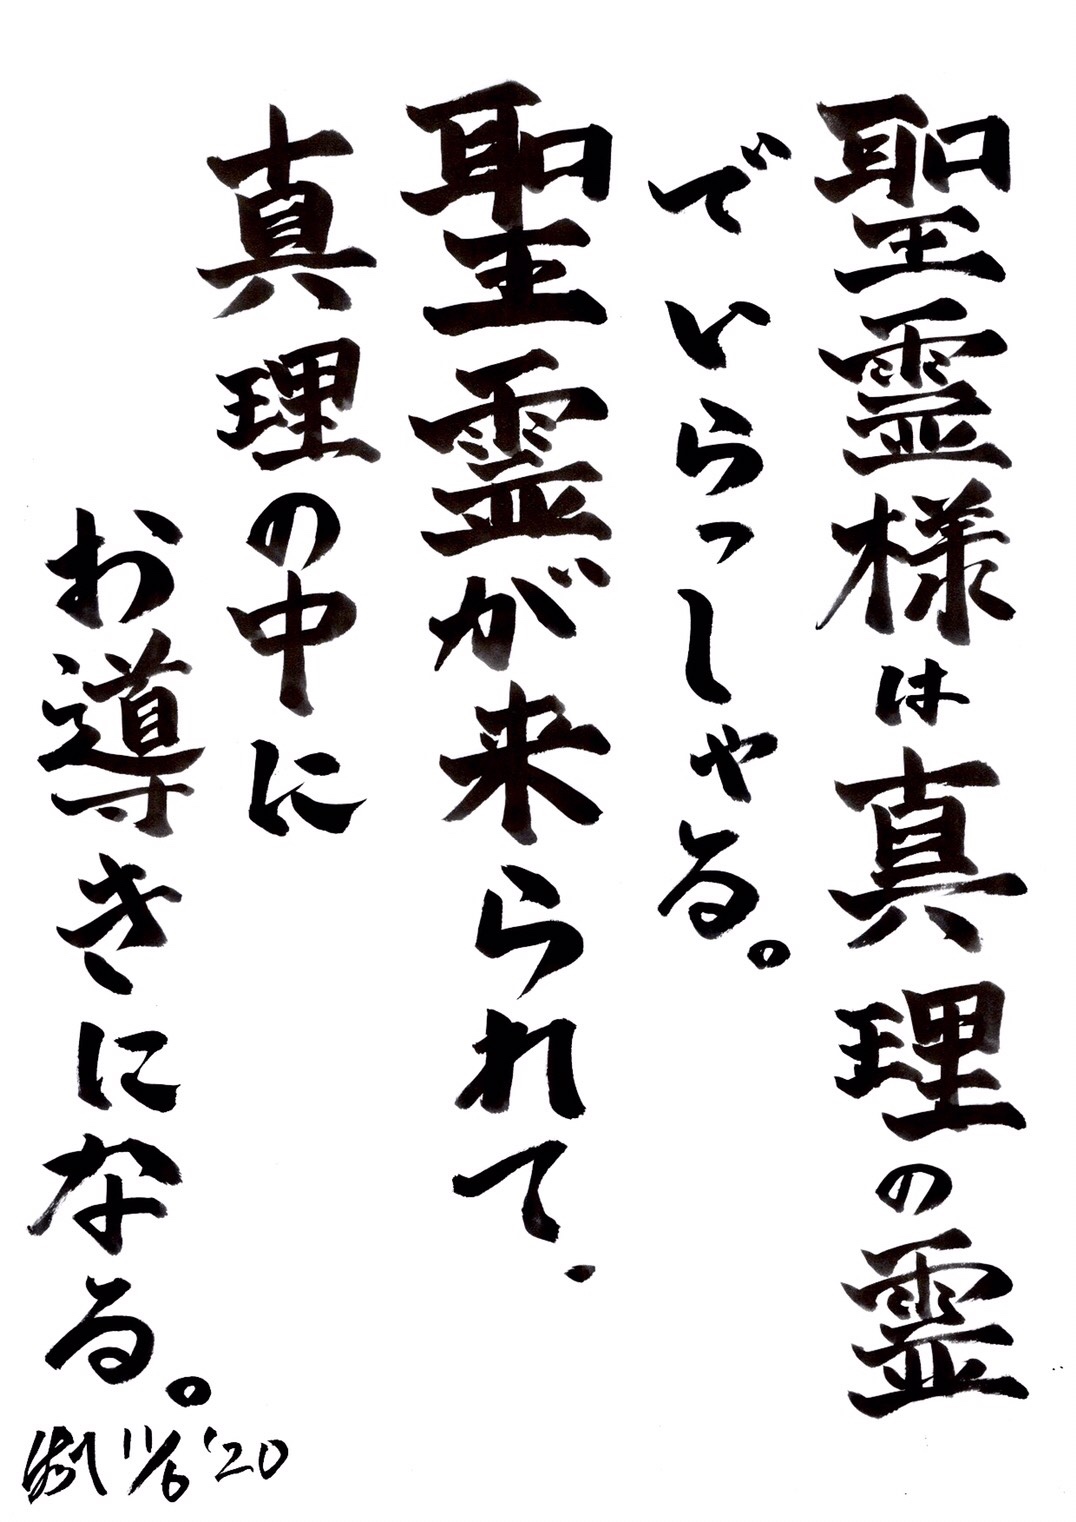 聖霊様は真理の霊
でいらっしゃる。
聖霊が来られて、
真理の中に
お導きになる。
11/6 '20